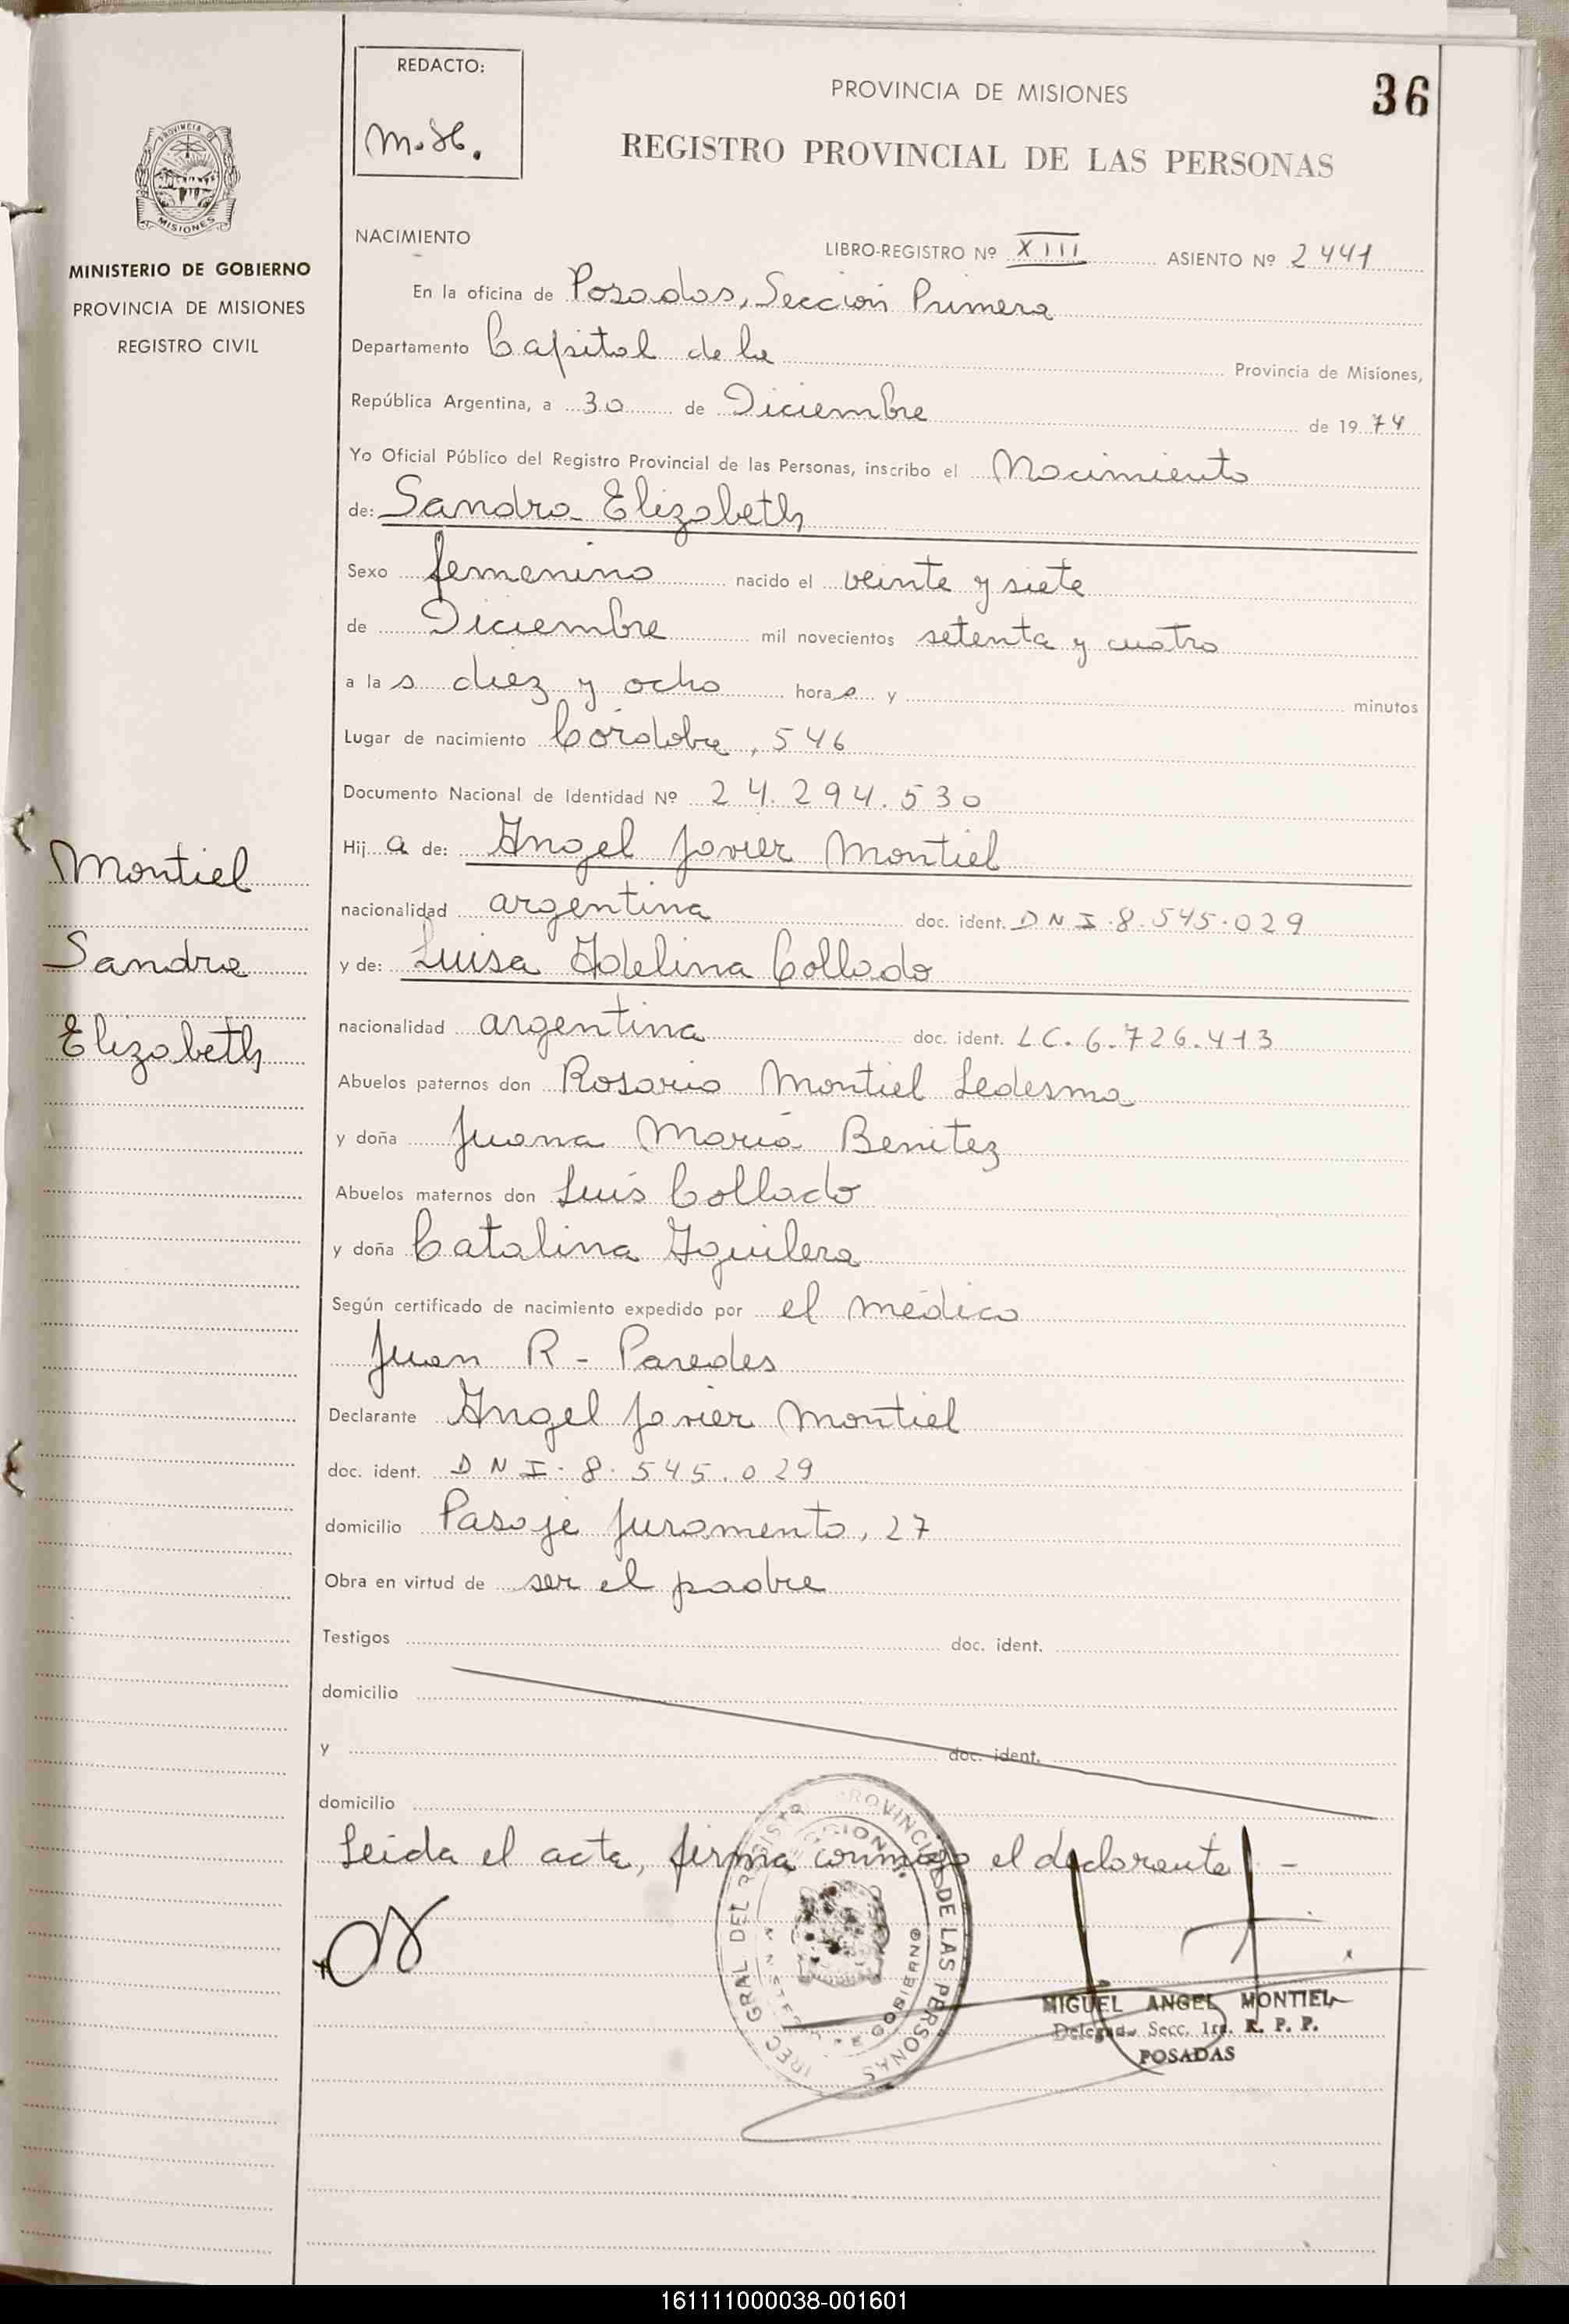 REDACTO:
M.H.
PROVINCIA DE MISIONES
36
REGISTRO PROVINCIAL DE LAS PERSONAS
PROVINCIA DE
MISIONES
MINISTERIO DE GOBIERNO
PROVINCIA DE MISIONES
REGISTRO CIVIL
NACIMIENTO
LIBRO-REGISTRO Nº XIII ASIENTO Nº 2441
En la oficina de Posadas, Sección Primera
Departamento Capital de la Provincia de Misiones,
República Argentina, a 30 de Diciembre de 1974
Yo Oficial Público del Registro Provincial de las Personas, inscribo el Nacimiento
de: Sandra Elizabeth
Sexo femenino nacido el veinte y siete
de Diciembre mil novecientos setenta y cuatro
a las diez y ocho horas y minutos
Lugar de nacimiento Córdoba, 546
Documento Nacional de Identidad Nº 24.294.530
Hija de: Angel Javier Montiel
nacionalidad argentina doc. ident. DNI.8.545.029
y de: Luisa Adelina Collado
nacionalidad argentina doc. ident. LC.6.726.413
Abuelos paternos don Rosario Montiel Ledesma
y doña Juana María Benitez
Abuelos maternos don Luis Collado
y doña Catalina Aguilera
Según certificado de nacimiento expedido por el médico
Juan R - Paredes
Declarante Angel Javier Montiel
doc. ident. DNI.8.545.029
domicilio Pasaje Juramento, 27
Obra en virtud de ser el padre
Testigos doc. ident.
domicilio
y doc. ident.
domicilio
Leida el acta, firma conmigo el declarante. -
Montiel
Sandra
Elizabeth
DIREC. GRAL. DEL REGISTRO PROVINCIAL DE LAS PERSONAS
GOBIERNO
MIGUEL ANGEL MONTIEL
Delegado Secc. 1ra. R. P. P.
POSADAS
161111000038-001601